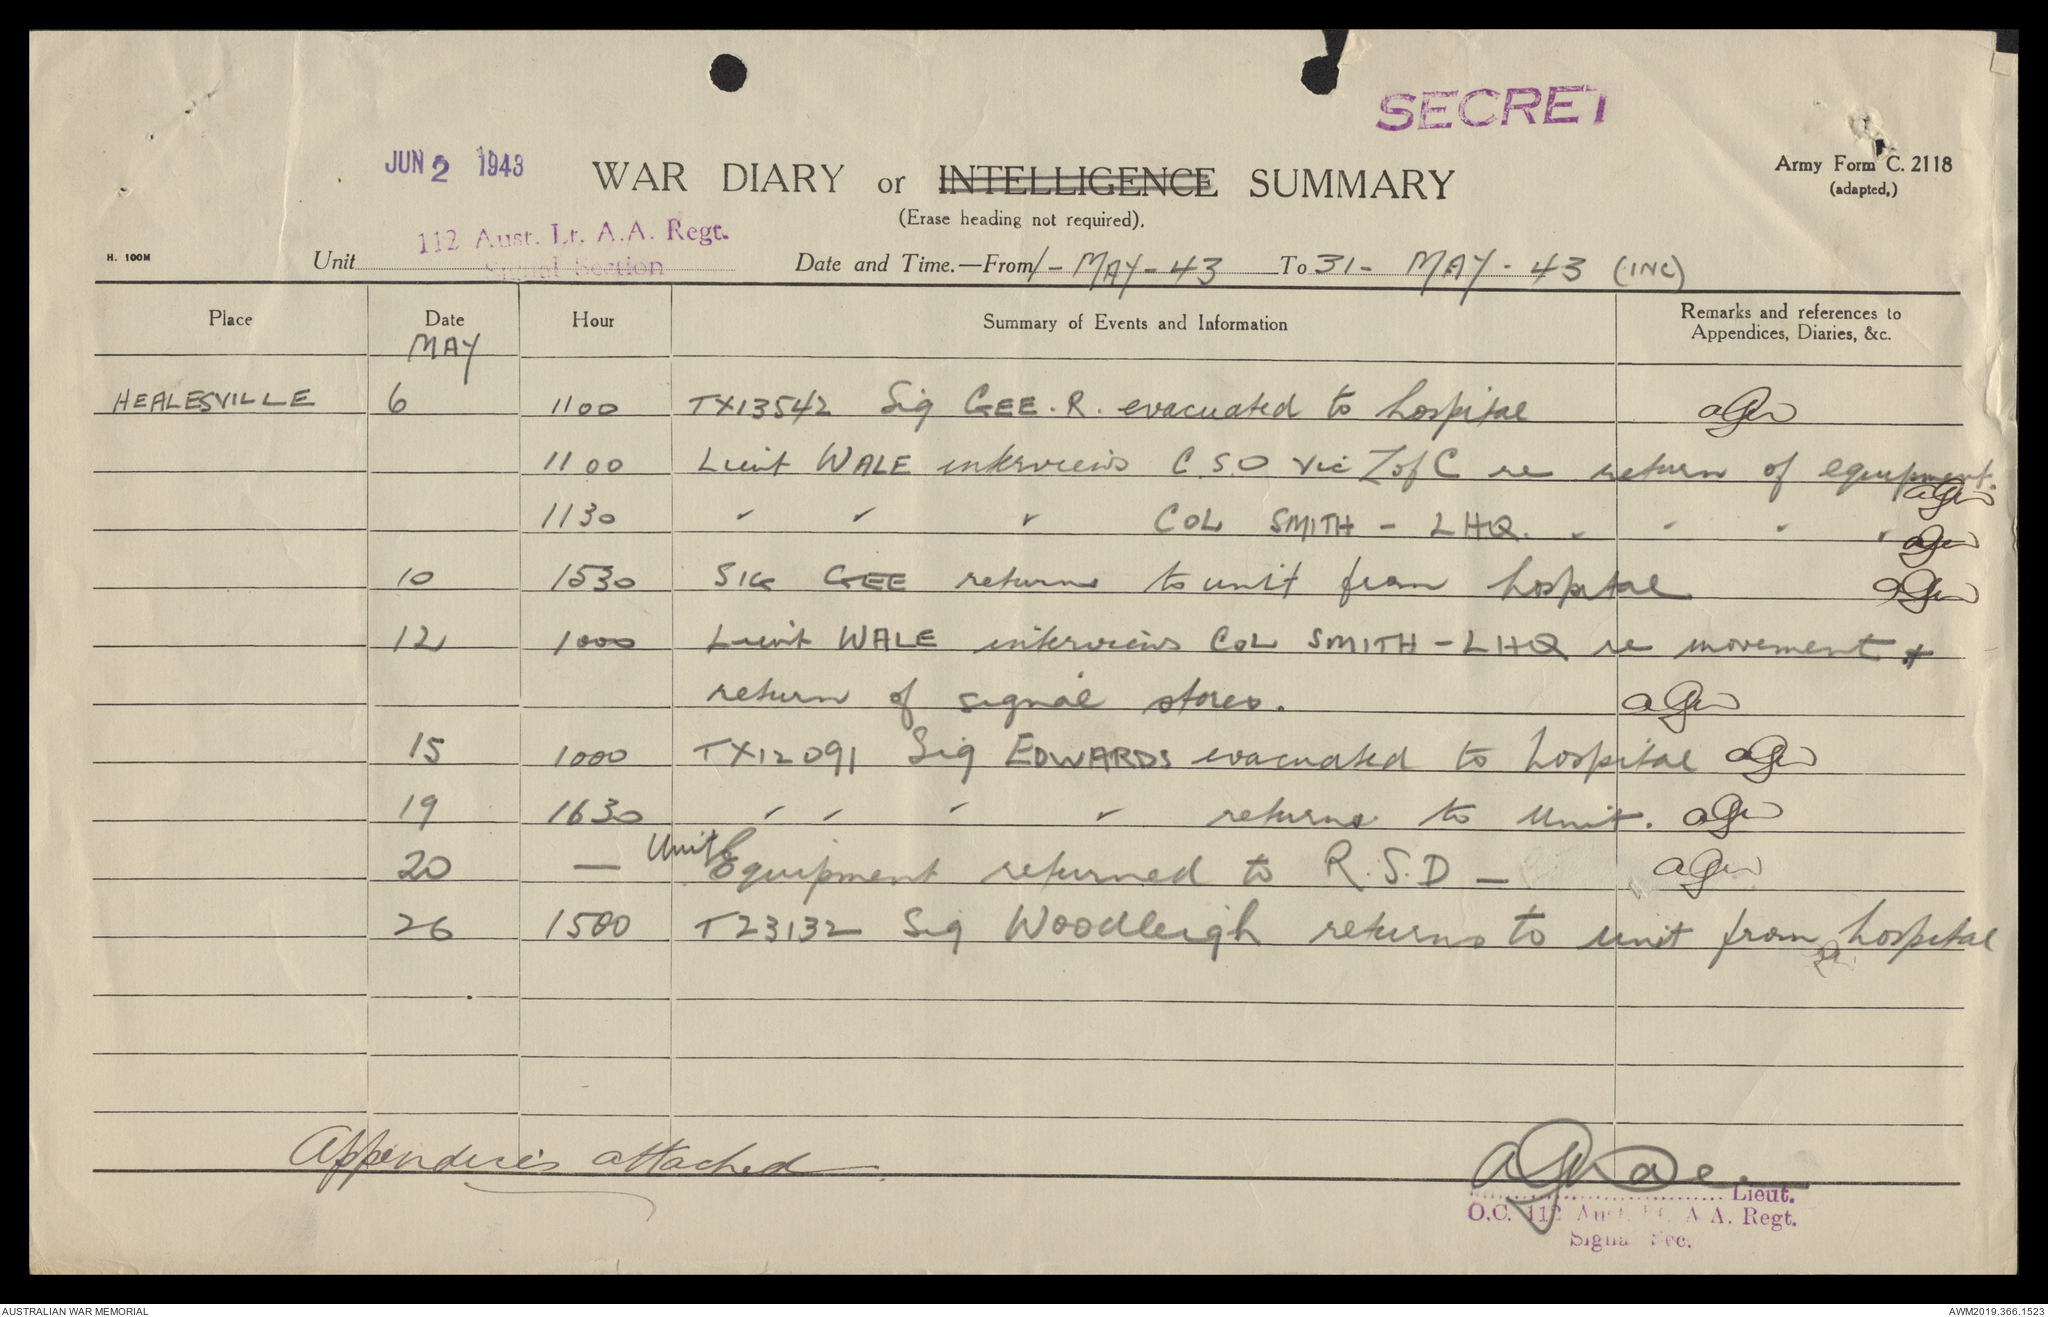 SECRET
JUN 2 1943
WAR DIARY or INTELLIGENCE SUMMARY
Army Form C. 2118
(adapted.)
(Erase heading not required).
112 Aust. Lt. A.A. Regt.
Signal Section
H. 100M
Unit
Date and Time.—From 1 - MAY - 43 To 31 - MAY - 43 (INC)
Place Date Hour Summary of Events and Information Remarks and references to Appendices, Diaries, &c.
MAY
HEALESVILLE 6 1100 TX13542 Sig GEE. R. evacuated to hospital AGW
1100 Lieut WALE interviews C S O Vic L of C re return of equipment. AGW
1130 " " " COL SMITH - LHQ. " " " " AGW
10 1530 SIG GEE returns to unit from hospital AGW
12 1000 Lieut WALE interviews COL SMITH - LHQ re movement &
return of signal stores. AGW
15 1000 TX12091 Sig EDWARDS evacuated to hospital AGW
19 1630 " " " " returns to Unit. AGW
20 — Unit Equipment returned to R.S.D — AGW
26 1500 T23132 Sig Woodleigh returns to unit from hospital
Appendices attached
AGWale.
Lieut.
O.C. 112 Aust. Lt. A.A. Regt.
Signal Sec.
AUSTRALIAN WAR MEMORIAL
AWM2019.366.1523